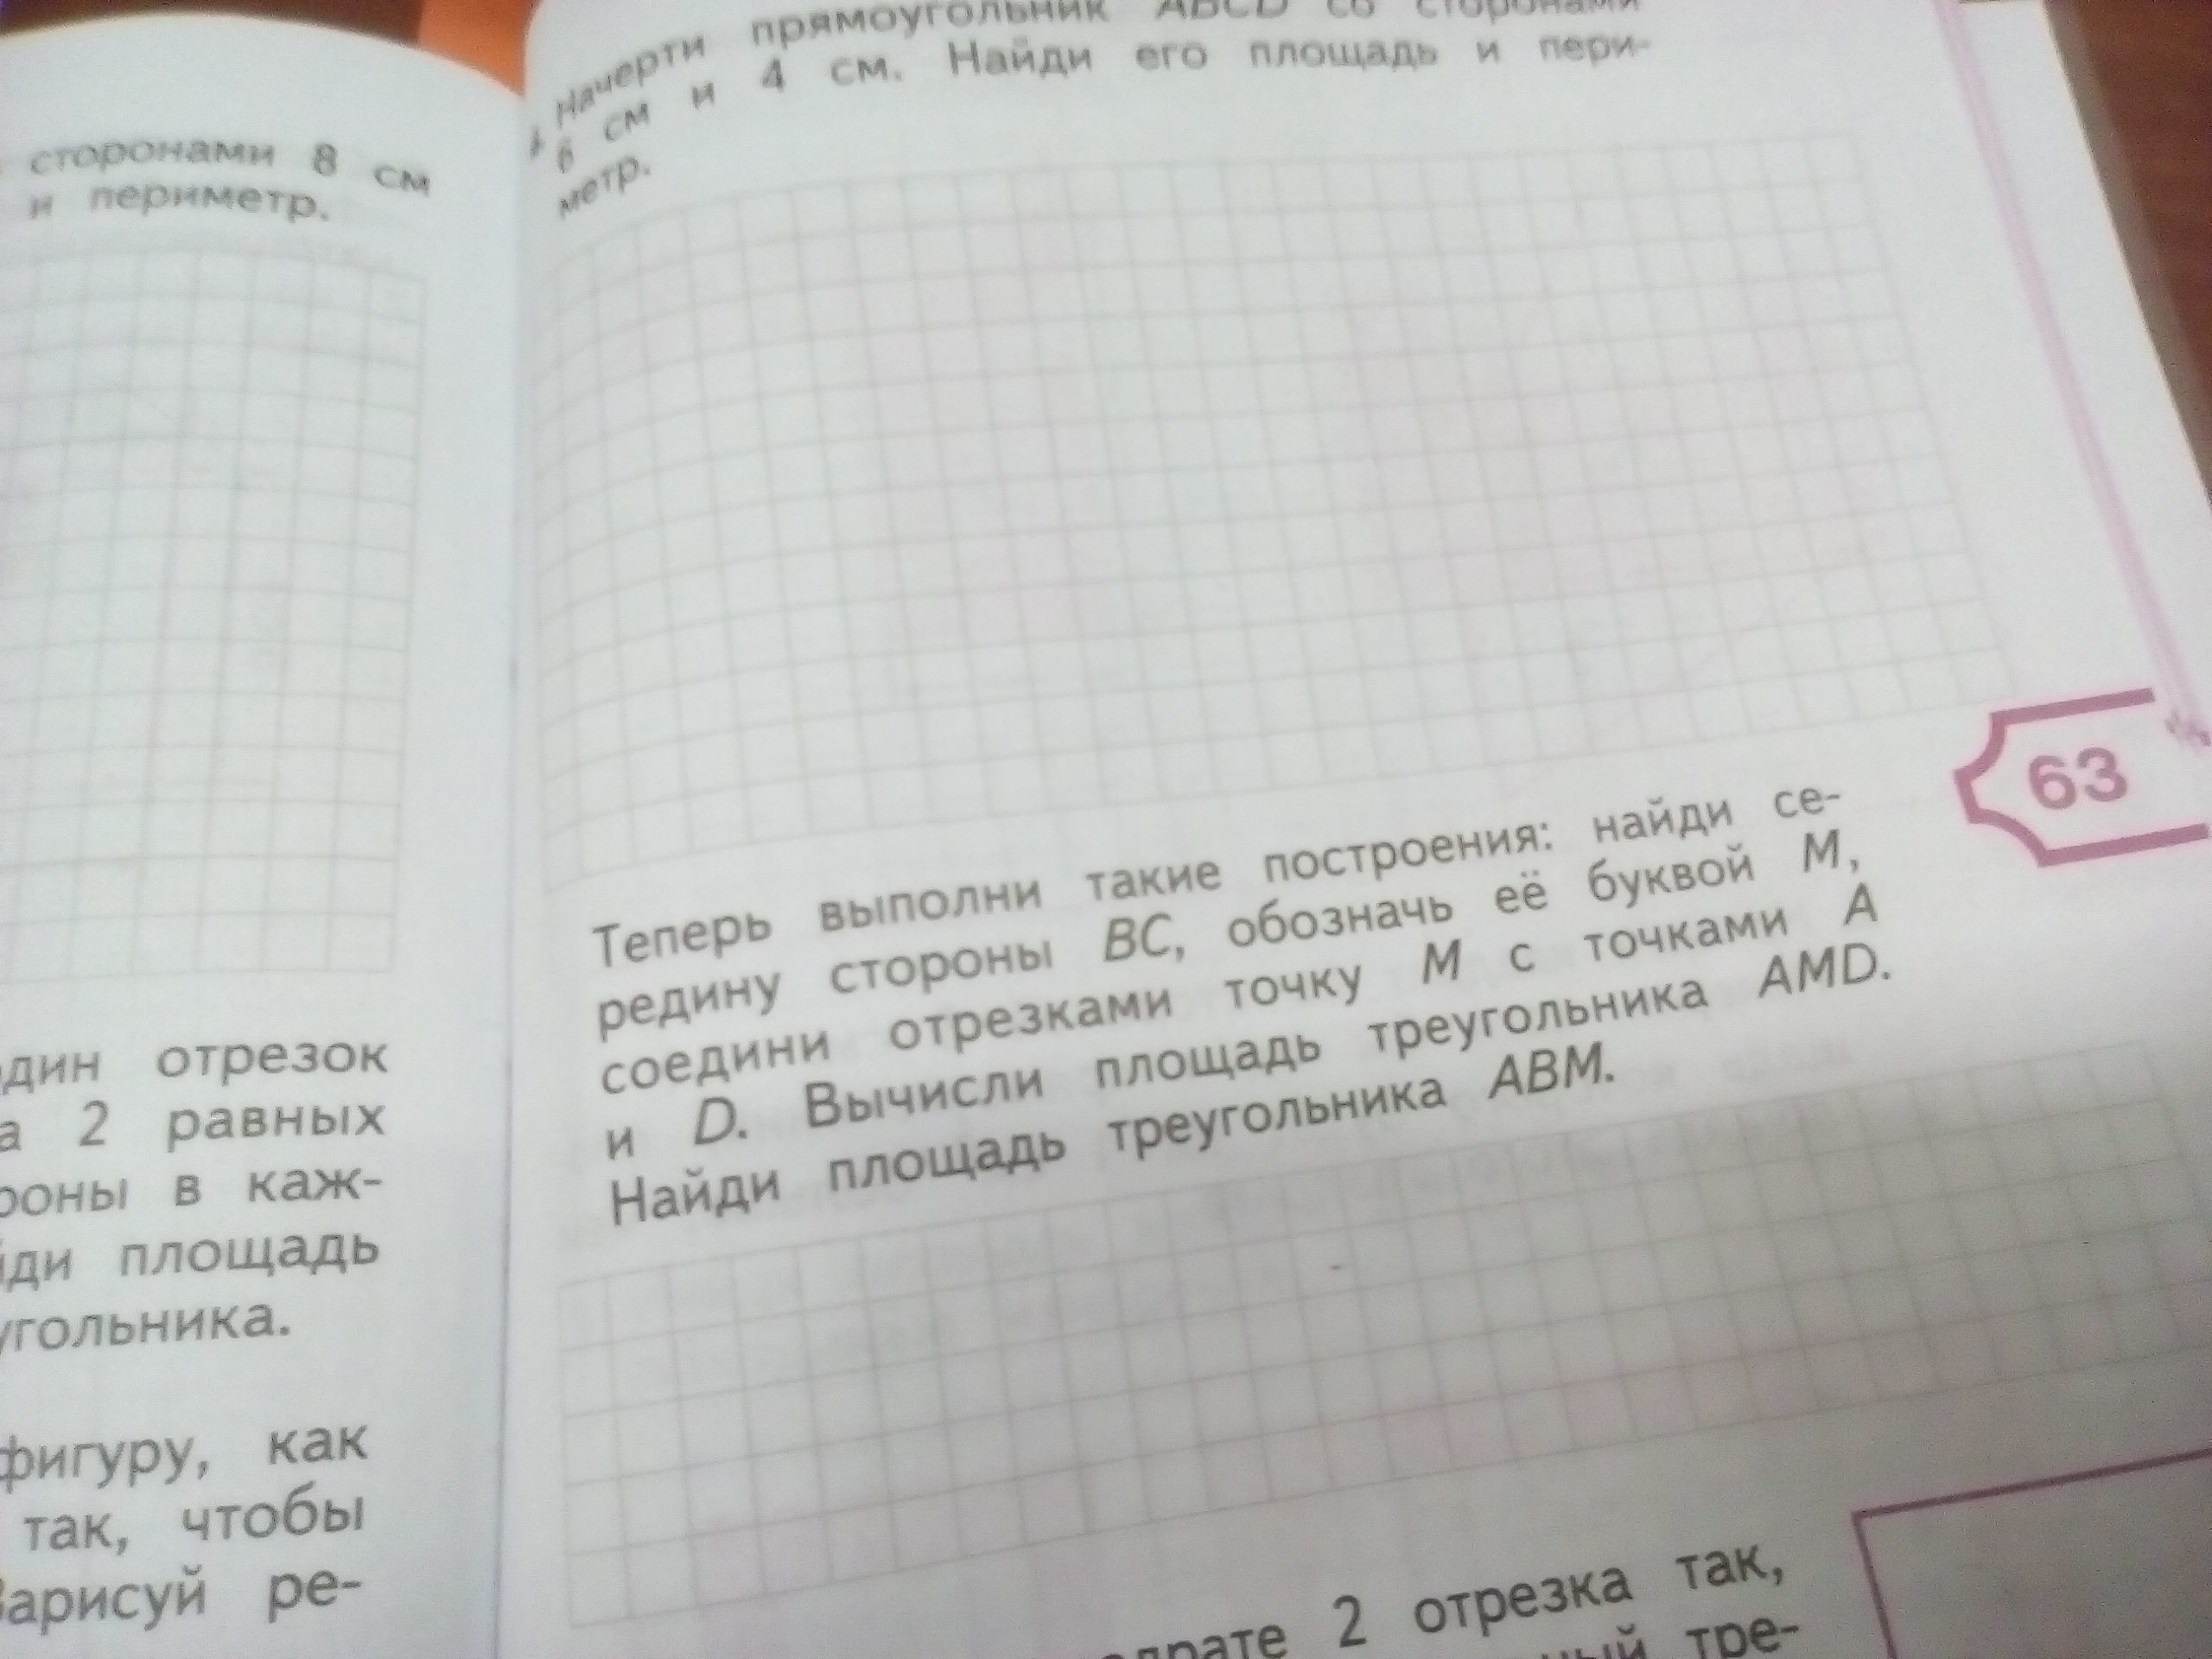 сторонами 8 см
и периметр.
отрезок
2 равных
в каж-
площадь
фигуру, как
так, чтобы
Зарисуй ре-
Начерти прямоугольник ABCD со сторонами
6 см и 4 см. Найди его площадь и пери-
метр.
63
Теперь выполни такие построения: найди се-
редину стороны BC, обозначь её буквой M,
соедини отрезками точку M с точками A
и D. Вычисли площадь треугольника AMD.
Найди площадь треугольника ABM.
2 отрезка так,
тре-